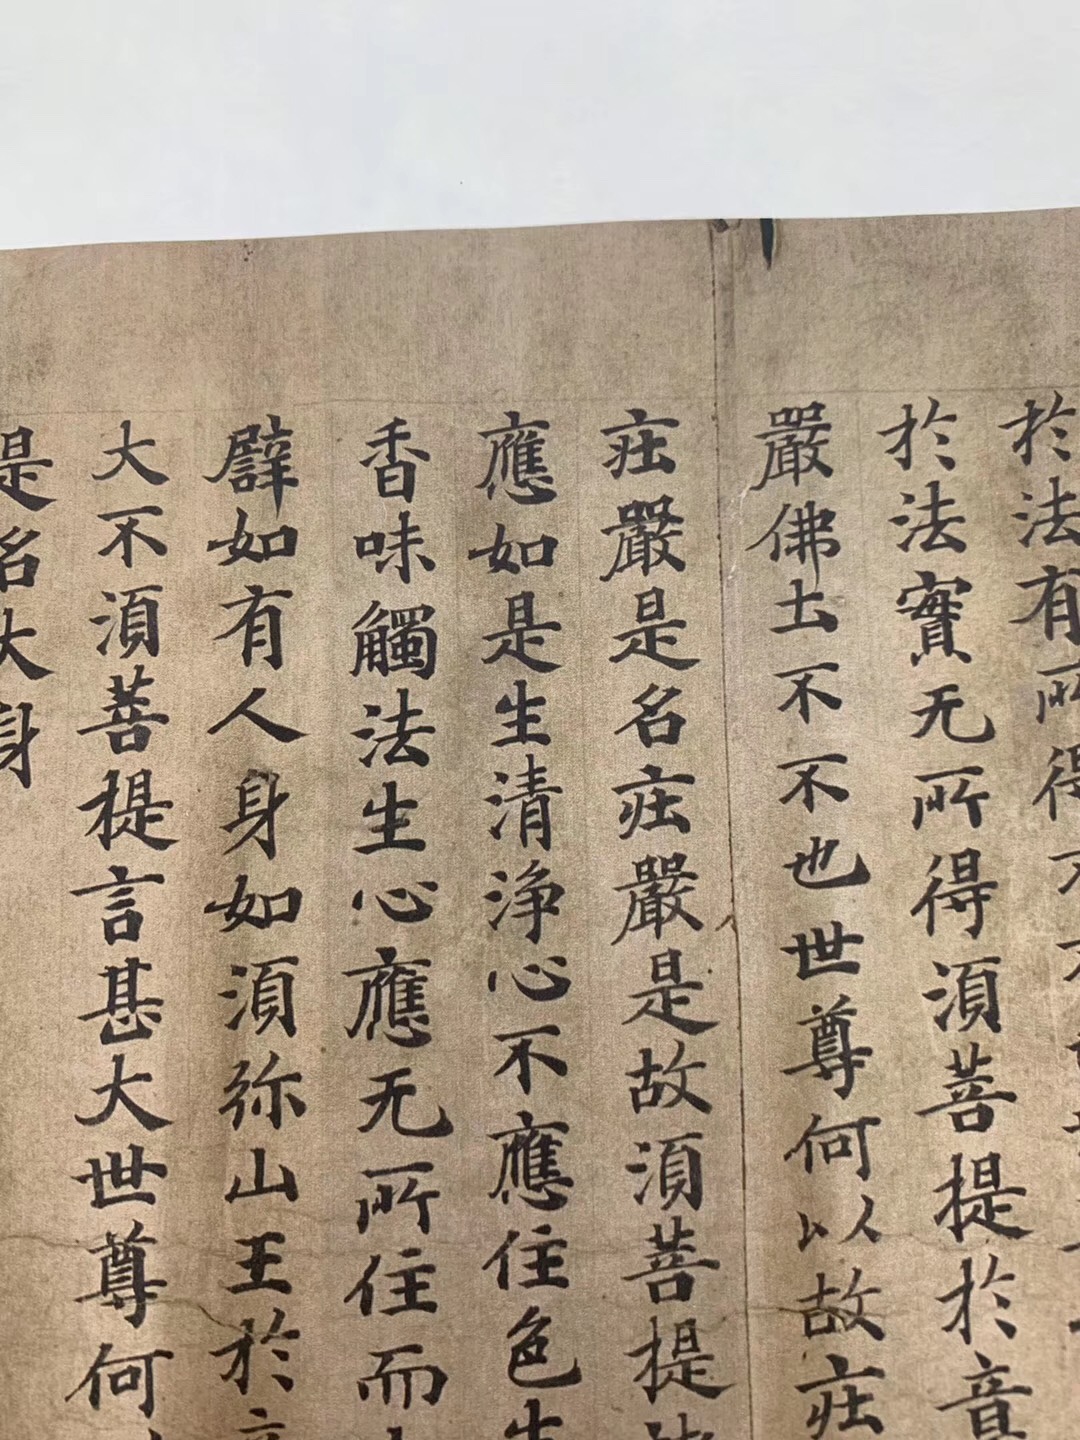 於法有所得不
於法實无所得湏菩提於
嚴佛土不不也世尊何以故莊
莊嚴是名莊嚴是故湏菩提
應如是生清淨心不應住色生
香味觸法生心應无所住而
譬如有人身如湏弥山王於
大不湏菩提言甚大世尊何
是名大身